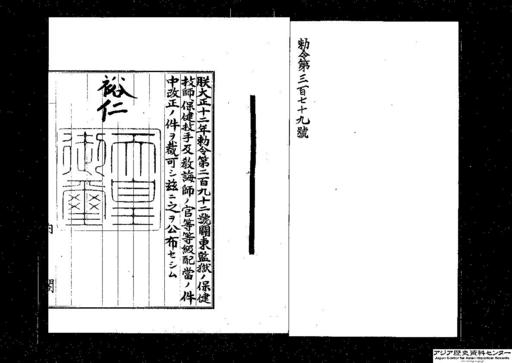 勅令第三百七十九號
朕大正十二年勅令第二百九十二號關東監獄ノ保健
技師保健技手及敎誨師ノ官等等級配當ノ件
中改正ノ件ヲ裁可シ玆ニ之ヲ公布セシム
裕仁
天皇御璽
内閣
アジア歴史資料センター
Japan Center for Asian Historical Records